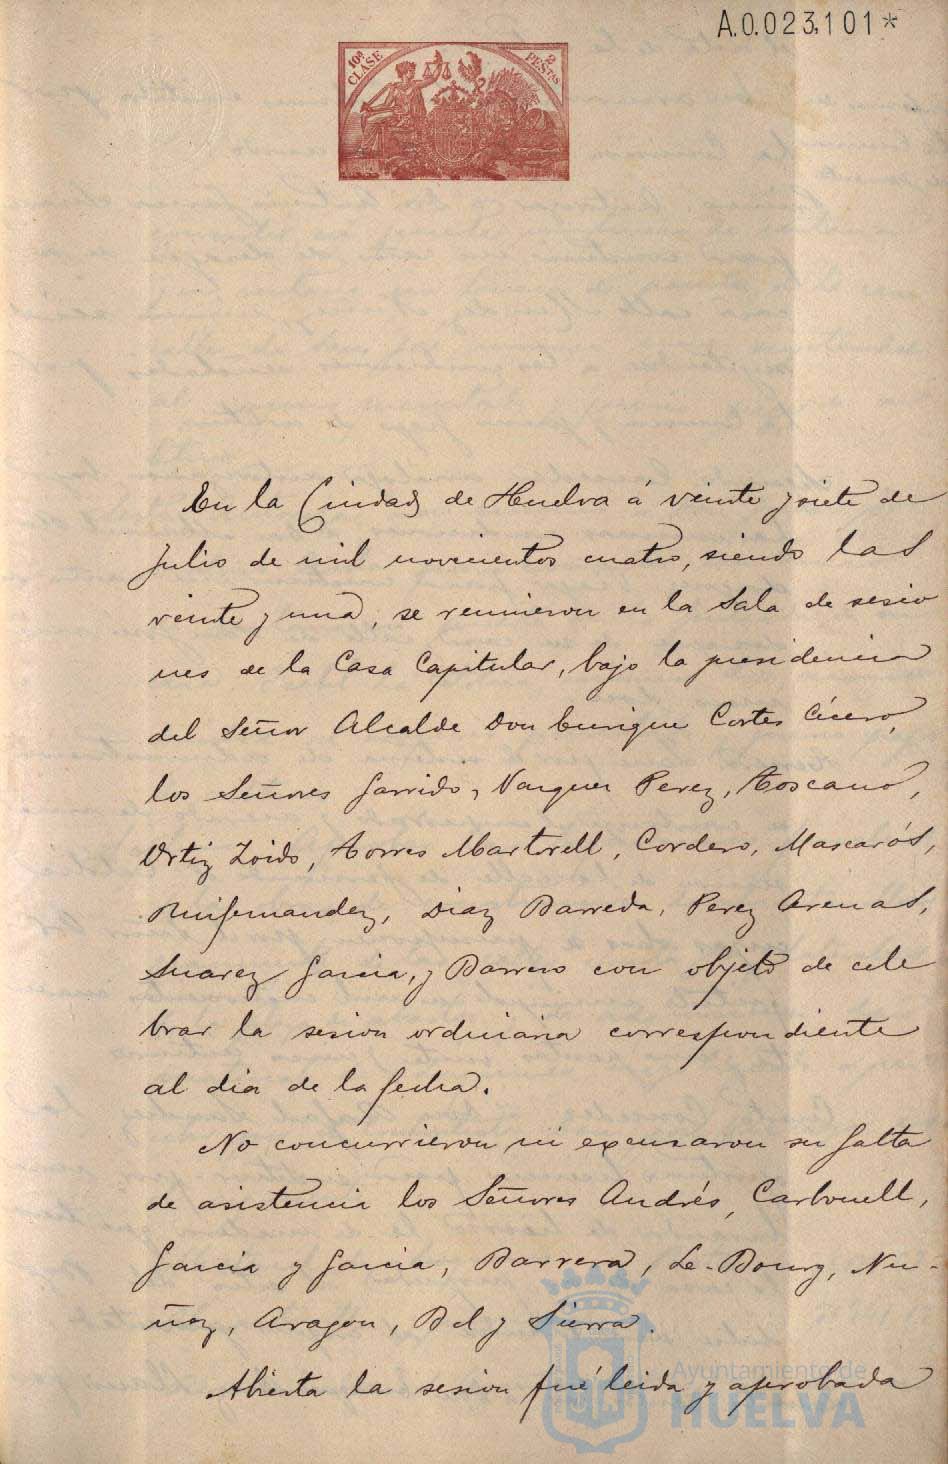 A.0.023,101*
10ª CLASE
2 PESTAS
En la Ciudad de Huelva á veinte y siete de
Julio de mil novecientos cuatro, siendo las
veinte y una, se reunieron en la Sala de sesio
nes de la Casa Capitular, bajo la presidencia
del Señor Alcalde Don Enrique Cortes Cícero,
los Señores Garrido, Vazquez Perez, Toscano,
Ortiz Zoido, Torres Martorell, Cordero, Mascarós,
Ruifernandez, Diaz Barreda, Perez Arenas,
Suarez Garcia, y Barrero con objeto de cele
brar la sesion ordinaria correspondiente
al dia de la fecha.
No concurrieron ni excusaron su falta
de asistencia los Señores Andrés, Carbonell,
Garcia y Garcia, Barrera, Le-Bourg, Nu-
ñez, Aragon, Bel y Sierra.
Abierta la sesion fué leida y aprobada
Ayuntamiento de
HUELVA